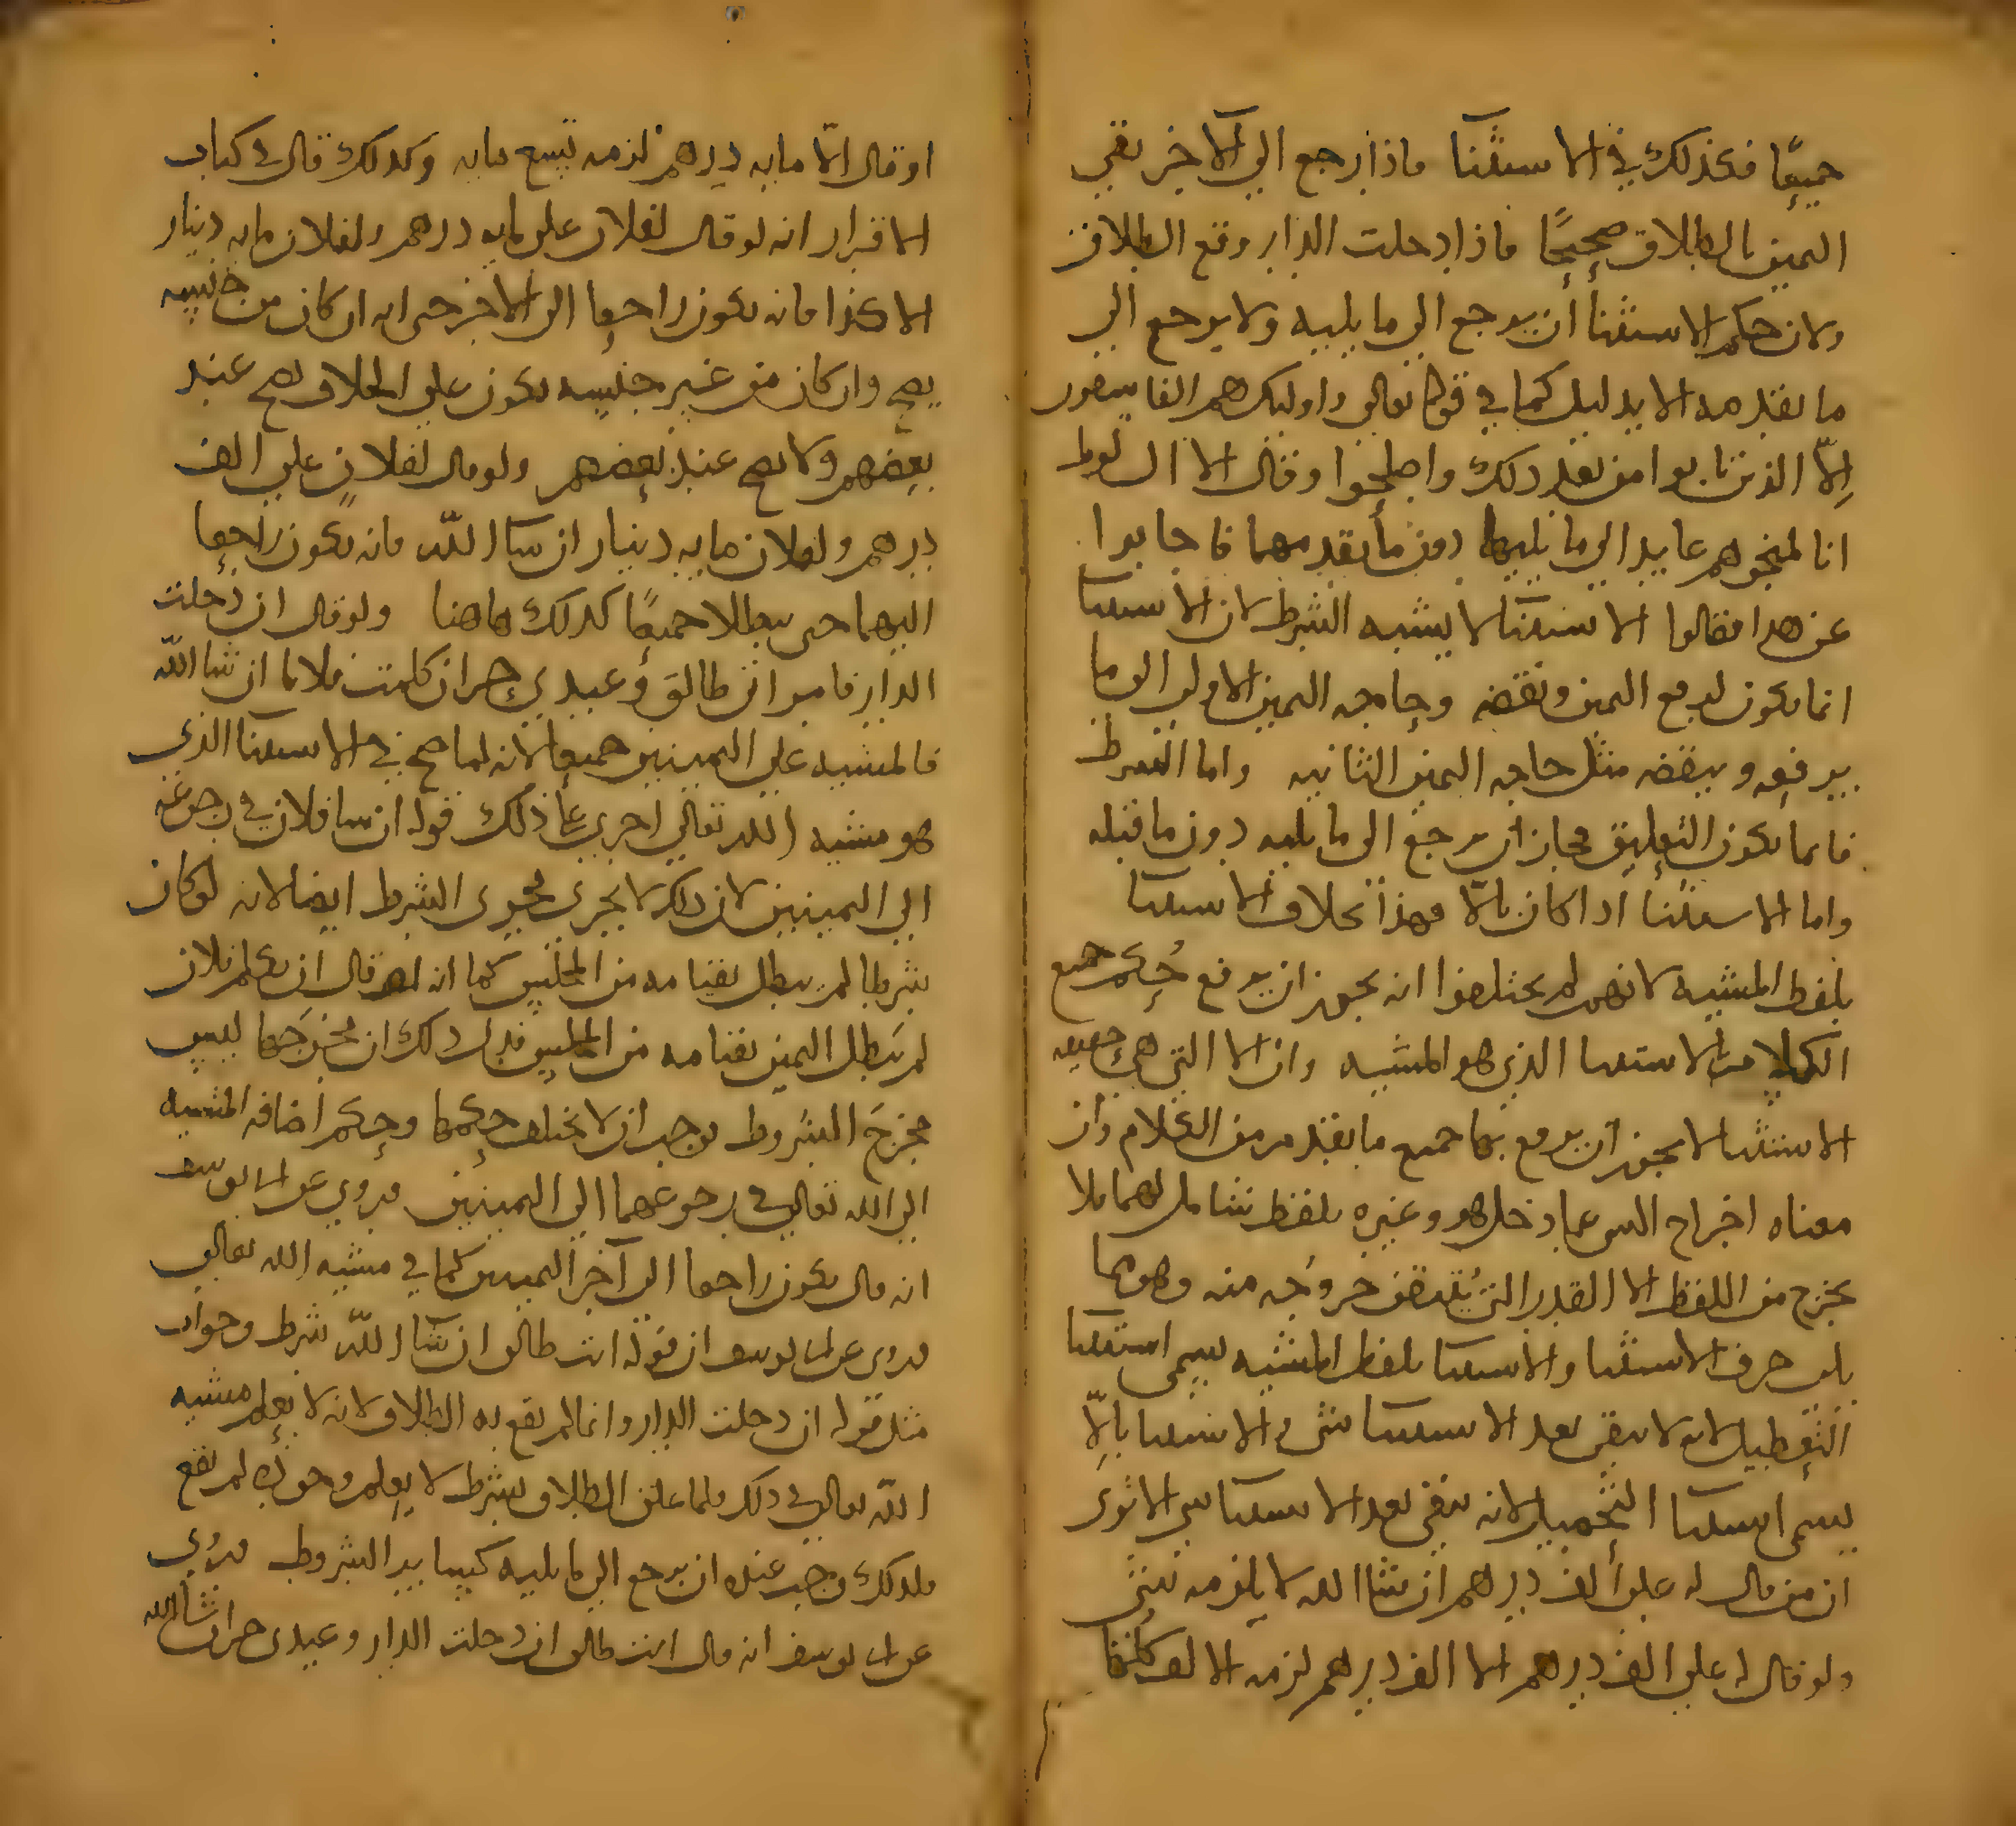 جميعًا فكذلك في الاستثنا فاذا رجع الي الاخر بقي
اليمين بالطلاق صحيحًا فاذا دخلت الدار وقع الطلاق
ولان حكم الاستثنا أن يرجع الي ما يليه ولا يرجع الي
ما تقدمه الا بدليل كما في قوله تعالي واوليك هم الفاسقون
إلّا الذين تابوا من بعد ذلك واصلحوا وقال الا ال لوط
انا لمنجوهم عايد الي ما يليها دون ما تقدمهما فاجابوا
عن هذا فقالوا الاستثنا لا يشبه الشرط لان الاستثنا
انما يكون لرفع اليمين ونقضه وحاجه اليمين الاولي الي ما
يرفعه وينقضه مثل حاجه اليمين الثانيه واما الشرط
فانما يكون التعليق فجاز ان يرجع الي ما يليه دون ما قبله
واما الاستثنا اذا كان بالّا فهذا بخلاف الاستثنا
بلفظ المشيه لانهم لم يختلفوا انه يجوز ان يرفع حُكم جميع
الكلام بالاستثنا الذي هو المشيه وان الا التي هي حقيقه
الاستثنا لا يجوز ان يرفع بها جميع ما تقدم من الكلام وان
معناه اخراج الشي عما دخل هو وغيره بلفظ شامل لهما فلا
يخرج من اللفظ الا القدر التي يُقتضى خروجه منه وهو مما
يلي حرف الاستثنا والاستثنا بلفظ المشيه يسمي استثنا
التعطيل لانه لا يبقي بعد الاستثنا شي والاستثنا بالّا
يسمي استثنا التحصيل لانه يبقي بعد الاستثنا شي الا تري
ان من قال له علي ألف درهم ان شا الله لا يلزمه شي
ولو قال له علي الف درهم الا الف درهم لزمه الالف كلها
او قال الّا مايه درهم لزمه تسع مايه وكذلك قال في كتاب
الاقرار انه لو قال لفلان علي مايه درهم ولفلان مايه دينار
الا كذا فانه يكون راجعا الي الاخر حتي انه ان كان من جنسه
يصح وان كان من غير جنسه يكون علي الخلاف يصح عند
بعضهم ولا يصح عند بعضهم ولو قال لفلان علي الف
درهم ولفلان مايه دينار ان شا اللّه فانه يكون راجعا
اليهما حتي يبطلا جميعًا كذلك هاهنا ولو قال ان دخلت
الدار فامراتي طالق وعبدي حر ان كلمت فلانا ان شا اللّه
فالمشيه علي اليمينين جميعا لانه لما صح في الاستثنا الذي
هو مشيه الله تعالي اجري علي ذلك قوله ان شا فلان في رجوعه
الي اليمينين لان ذلك لا يجري مجري الشرط ايضا لانه لو كان
شرطا لم يبطل بقيامه من المجلس كما انه لو قال ان يكلم فلان
لم تَبطل اليمين بقيامه من المجلس فدل ذلك ان مخرجَها ليس
مخرجَ الشروط فوجب ان لا يختلف حكمها وحكم اضافه المشيه
الي الله تعالي في رجوعهما الي اليمينين وروي عن ابي يوسف
انه قال يكون راجعا الي آخر اليمينين كما في مشيه الله تعالي
وروي عن ابي يوسف ان قوله انت طالق ان شا اللّه شرط وجواب
مثل قوله ان دخلت الدار وانما لم يقع به الطلاق لانه لا يعلم مشيه
اللّه تعالي في ذلك فلما علق الطلاق بشرط لا يعلم وجوده لم يقع
فلذلك وجب عنده ان يرجع الي ما يليه كسايير الشروط وروي
عن ابي يوسف انه قال انت طالق ان دخلت الدار وعبدي حر ان شا الله